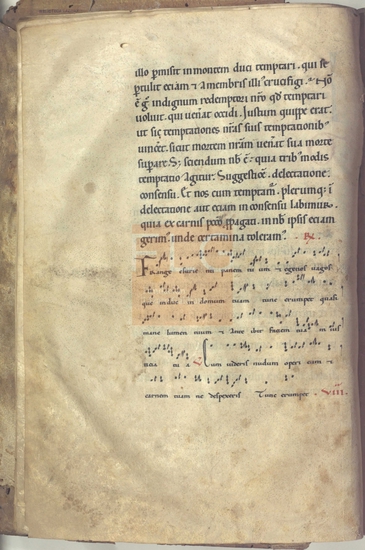 illo p̄misit in montem duci temptari. qui se
p̄tulit etiam & a membris illi᷒ crucifigi. Nō
ē g̊ indignum redemptori nr̄o qd̄ temptari
voluit. qui uenat occidi. Justum quippe erat.
ut sic temptationes nr̄as suis temptationib᷒
uinc̄et. sicut mortem nr̄am uenat sua morte
sup̄are. S; sciendum nb̄ ē. quia trib᷒ modis
temptatio agitur. Suggestiōe. delectatione.
consensu. Et nos cum temptam᷒. plerunq; ī
delectatione. aut etiam in consensu labimur.
quia ex carnis pccō p̄pagati. in nb̄ ipsis etiam
gerim᷒. unde certamina toleram᷒. R̄
Frange esurienti panem tuum & egenos uagos
que induc in domum tuam tunc erumpet quasi
mane lumen tuum & Ante ibit faciem tuā iusti
tia tu a V Cum uideris nudum operi eum &
carnem tuam ne despexeris Tunc erumpet. VIII.